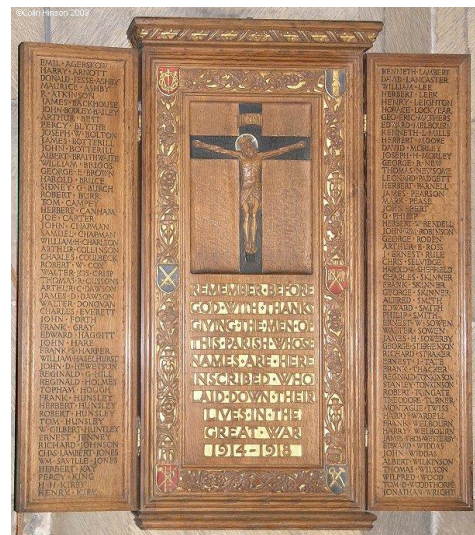 ©Colin Hinson 2003
EMIL · AGERSKOW
HARRY · ARNOTT
DONALD · JESSE · ASHBY
MAURICE · ASHBY
R · ATKINSON
JAMES · BACKHOUSE
JOHN · BAILEY
ARTHUR · BEST
PERCY · BLYTHE
JOSEPH · W · BOLTON
JAMES · BOTTERILL
JOHN · BOTTERILL
ALBERT · BRAITHWAITE
WILLIAM · BRIGGS
GEORGE · H · BROWN
HAROLD · BRUCE
SIDNEY · G · BURCH
ROBERT · BURR
TOM · CAMPEY
HERBERT · CANHAM
JOE · CARTER
JOHN · CHAPMAN
SAMUEL · CHAPMAN
WILLIAM · H · CHARLTON
ARTHUR · COLLINSON
CHARLES · COULBECK
ROBERT · W · COY
WALTER · JOS · CRISP
THOMAS · R · CUSSONS
ARTHUR · C · DAWSON
JAMES · D · DAWSON
WALTER · DONOVAN
CHARLES · EVERETT
JOHN · FORTH
FRANK · GRAY
EDWARD · HAGGITT
JOHN · HARE
FRANK · S · HARPER
WILLIAM · HASELHURST
JOHN · D · HEWETSON
REGINALD · G · HILL
REGINALD · HOLMES
TOPHAM · HOUGH
FRANK · HUNSLEY
HERBERT · HUNSLEY
ROBERT · HUNSLEY
TOM · HUNSLEY
W · GILBERT · HUNTLEY
ERNEST · JENNEY
RICHARD · JOHNSON
CHAS · LAMBERT · JONES
WM · SAVILLE · JONES
HERBERT · KAY
PERCY · KING
H · H · KIRBY
HENRY · KIRK
REMEMBER · BEFORE
GOD · WITH · THANKS
GIVING · THE · MEN · OF
THIS · PARISH · WHOSE
NAMES · ARE · HERE
INSCRIBED · WHO
LAID · DOWN · THEIR
LIVES · IN · THE
GREAT · WAR
1914 - 1918
KENNETH · LAMBERT
DAVID · LANCASTER
WILLIAM · LEE
HERBERT · LEEK
HENRY · LEIGHTON
HORACE · LOCK
GEO · ERIC · MATHERS
EDWARD · MELBOURNE
KENNETH · L · MILLS
HERBERT · MOORE
DAVID · MORLEY
JOSEPH · H · MORLEY
GEORGE · R · NEW
THOMAS · NEWSOME
LEONARD · PADGETT
HERBERT · PARNELL
JAMES · PEARSON
MARK · PEASE
JOHN
G · PHILIP
HERBERT · W · RENDELL
JOHN · ROBINSON
GEORGE · RODEN
ARTHUR · B · ROSS
J · ERNEST · RULE
CHRIS · SELVIDGE
HAROLD · W · SHEFFIELD
CHARLES · SKINNER
FRANK · SKINNER
GEORGE · SKINNER
ALFRED · SMITH
EDWARD · SMITH
PHILIP · SMITH
ERNEST · W · SOWEN
WALTER · SOWEN
JAMES · H · SOWERY
GEORGE · STEPHENSON
RICHARD · STRAKER
ERNEST · J · TATE
FRANK · THACKER
REGINALD · TONKINSON
STANLEY · TONKINSON
ROBERT · TUNGATE
THEODORE · TURNER
MONTAGUE · TWISS
HARRY · WARDELL
FRANK · WELBOURN
HARRY · WELBOURN
JAMES · THOS · WESTERBY
EDWARD · WIDDAS
JOHN · WIDDAS
ALBERT · WILKINSON
THOMAS · WILSON
WILFRED · WOOD
TOM · D · WOODTHORPE
JONATHAN · WRIGHT